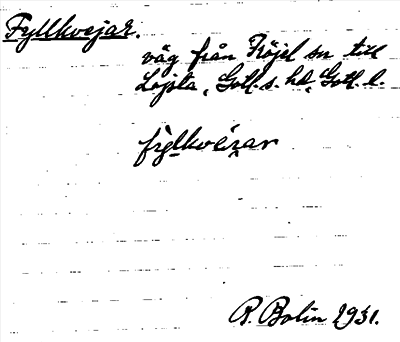 Fyllkvejar.
väg från Fröjel sn till
Lojsta, Gotl. s. hd, Gotl. l.
fylkvéi̯ar
R. Bolin 1931.